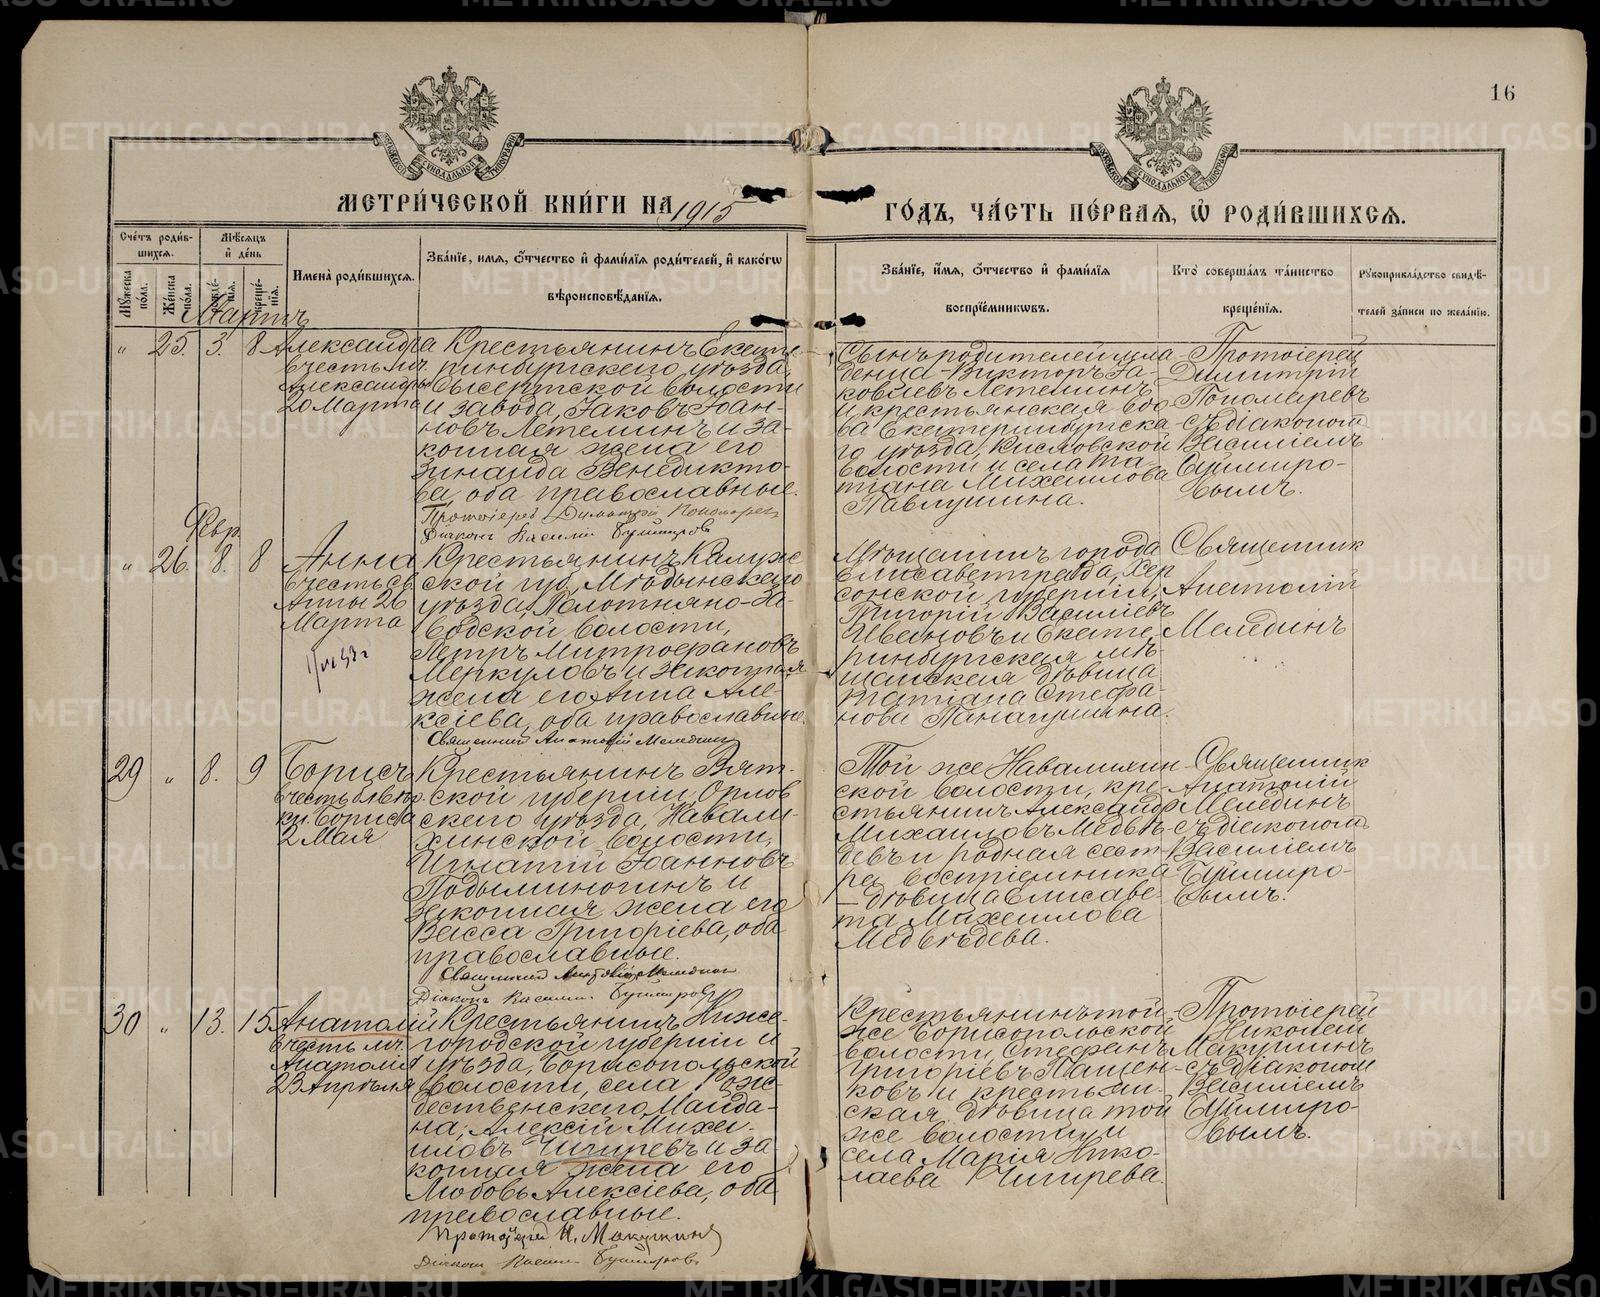 16
МОСКОВСКОЙ СУНОДАЛЬНОЙ ТИПОГРАФІИ
МОСКОВСКОЙ СУНОДАЛЬНОЙ ТИПОГРАФІИ
МЕТРИ́ЧЕСКОЙ КНИ́ГИ НА 1915
ГО́ДЪ, ЧА́СТЬ ПЕ́РВАЯ, Ѡ҆ РОДИ́ВШИХСЯ.
Сче́тъ роди́в-
шихся.
Мѣ́сяцъ
и҆ де́нь
Мꙋ́жеска по́ла.
Же́нска по́ла.
рожде́-
нїя.
креще́-
нїя.
И҆мена̀ роди́вшихся.
Зва́нїе, и҆́мя, ѻ҆́тчество и҆ фами́лїя роди́телей, и҆ како́гѡ
вѣроисповѣ́данїя.
Зва́нїе, и҆́мя, ѻ҆́тчество и҆ фами́лїя
воспрїе́мникѡвъ.
Кто̀ соверша́лъ та́инство
креще́нїя.
Рꙋкоприкла́дство свидѣ́-
телей за́писи по жела́нїю.
Мартъ
" 25. 3. 8
Александра
въ честь мч.
Александры
20 Марта
Крестьянинъ Екате-
ринбургскаго уѣзда,
Сысертской волости
и завода, Іаковъ Іоан-
новъ Летеминъ и за-
конная жена его
Зинаида Венедикто-
ва, оба православные.
Протоіерей Димитрій Пономарев
Діаконъ Василій Буймиров
Сынъ родителей мла-
денца - Викторъ Іа-
ковлевъ Летеминъ
и крестьянская вдо-
ва Екатеринбургска-
го уѣзда, Кисловской
волости и села Та-
тіана Михаилова
Павлушина.
Протоіерей
Димитрій
Пономаревъ
съ діакономъ
Василіемъ
Буймиро-
вымъ.
Февр.
" 26. 8. 8
Анна
въ честь св.
Анны 26
Марта
Крестьянинъ Калуж-
ской губ., Мѣдынскаго
уѣзда, Полотняно-За-
водской волости,
Петръ Митрофановъ
Меркуловъ и законная
жена его Анна Але-
ксіева, оба православные.
Священникъ Анатолій Мелединъ
Мѣщанинъ города
Елисаветграда, Хер-
сонской губерніи,
Григорій Василіевъ
Ивановъ и Екате-
ринбургская мѣ-
щанская дѣвица
Татіана Стефа-
нова Панапушина.
Священник
Анатолій
Мелединъ
29 " 8. 9
Борисъ
въ честь блгв.
кн. Бориса
2 Мая
Крестьянинъ Вят-
ской губерніи, Орлов-
скаго уѣзда, Навали-
хинской волости,
Игнатій Іоанновъ
Подыминогинъ и
законная жена его
Васса Григоріева, оба
православные.
Священникъ Анатолій Мелединъ
Діаконъ Василій Буймировъ
Той же Навалихин-
ской волости, кре-
стьянинъ Александръ
Михаиловъ Медвѣ-
девъ и родная сест-
ра воспріемника
- дѣвица Елисаве-
та Михаилова
Медвѣдева.
Священник
Анатолій
Мелединъ
съ діакономъ
Василіемъ
Буймиро-
вымъ.
30 " 13. 15
Анатолій
въ честь мч.
Анатолія
23 Апрѣля
Крестьянинъ Ниже-
городской губерніи и
уѣзда, Борисопольской
волости, села Рож-
дественскаго Майда-
на, Алексій Михаи-
ловъ Чигиревъ и за-
конная жена его
Любовь Алексіева, оба
православные.
Протоіерей Н. Макушинъ
Діаконъ Василій Буймировъ
Крестьянинъ той-
же Борисопольской
волости, Стефанъ
Григоріевъ Пащен-
ковъ и крестьян-
ская дѣвица той
же волости и
села Марія Нико-
лаева Чигирева.
Протоіерей
Николай
Макушинъ
съ діакономъ
Василіемъ
Буймиро-
вымъ.
METRIKI.GASO-URAL.RU